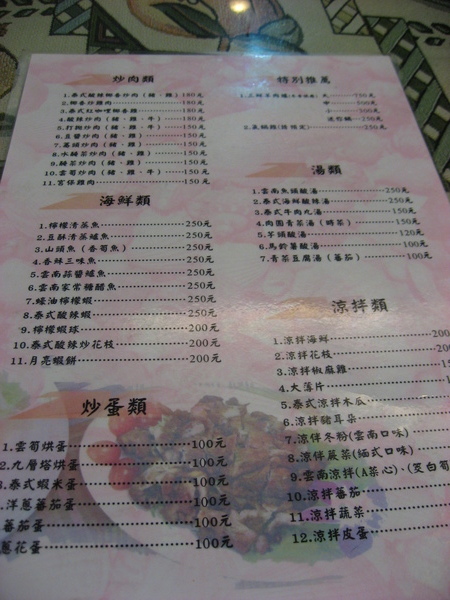 炒肉類
1.泰式酸辣椰香炒肉(豬、雞)180元
2.椰香炒雞肉 180元
3.泰式紅咖哩椰香雞 180元
4.酸辣炒肉(豬、雞、牛) 150元
5.打拋炒肉(豬、雞、牛) 150元
6.豆醬炒肉(豬、雞) 150元
7.蕃頭炒肉(豬、雞) 150元
8.水醃菜炒肉(豬、雞) 150元
9.醃菜炒肉(豬、雞) 150元
10.雲筍炒肉(豬、雞、牛) 150元
11.宮保雞肉 150元
海鮮類
1.檸檬清蒸魚 250元
2.豆酥清蒸鱸魚 250元
3.山頭魚(香筍魚) 250元
4.香辣三味魚 250元
5.雲南蒜醬鱸魚 250元
6.雲南家常糖醋魚 250元
7.蠔油檸檬蝦 250元
8.泰式酸辣蝦 250元
9.檸檬蝦球 200元
10.泰式酸辣炒花枝 200元
11.月亮蝦餅 200元
炒蛋類
1.雲筍烘蛋 100元
2.九層塔烘蛋 100元
3.泰式蝦米蛋 100元
洋蔥蕃茄蛋 100元
蕃茄蛋 100元
蔥花蛋 100元
特別推薦
大 700元
中 500元
小 300元
250元
250元
湯類
1.雲南魚頭酸湯 250元
2.泰式海鮮酸辣湯 250元
3.泰式牛肉丸湯 150元
4.肉圓青菜湯(時菜) 150元
5.芋頭酸湯 120元
6.馬鈴薯酸湯 100元
7.青菜豆腐湯(蕃茄) 100元
涼拌類
1.涼拌海鮮 200
2.涼拌花枝 200
3.涼拌椒麻雞
4.大薄片
5.泰式涼拌木瓜
6.涼拌豬耳朵
7.涼伴冬粉(雲南口味)
8.涼伴蕨菜(緬式口味)
9.雲南涼拌(A菜心)、(茭白筍
10.涼拌蕃茄
11.涼拌蔬菜
12.涼拌皮蛋